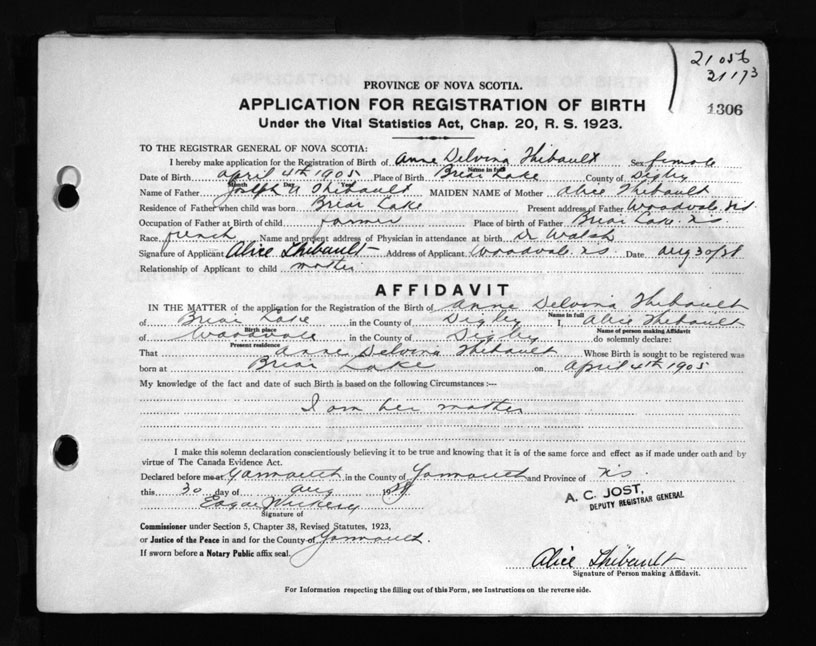 21056
21173
1306
PROVINCE OF NOVA SCOTIA.
APPLICATION FOR REGISTRATION OF BIRTH
Under the Vital Statistics Act, Chap. 20, R. S. 1923.
TO THE REGISTRAR GENERAL OF NOVA SCOTIA:
I hereby make application for the Registration of Birth of Anne Delvina Thibault Sex female
Name in full
Date of Birth April 4th 1905 Place of Birth Briar Lake County of Digby
Month Day Year
Name of Father Joseph A Thibault MAIDEN NAME of Mother Alice Thibault
Residence of Father when child was born Briar Lake Present address of Father Woodvale N.S.
Occupation of Father at Birth of child farmer Place of birth of Father Briar Lake N.S.
Race french Name and present address of Physician in attendance at birth Dr Walsh
Signature of Applicant Alice Thibault Address of Applicant Woodvale N.S. Date Aug 30/
Relationship of Applicant to child mother
AFFIDAVIT
IN THE MATTER of the application for the Registration of the Birth of Anne Delvina Thibault
Name in full
of Briar Lake in the County of Digby I, Alice Thibault
Birth place Name of person making Affidavit
of Woodvale in the County of Digby do solemnly declare:
Present residence
That Anne Delvina Thibault Whose Birth is sought to be registered was
born at Briar Lake on April 4th 1905
My knowledge of the fact and date of such Birth is based on the following Circumstances :—
I am her mother
I make this solemn declaration conscientiously believing it to be true and knowing that it is of the same force and effect as if made under oath and by
virtue of The Canada Evidence Act.
Declared before me at Yarmouth in the County of Yarmouth and Province of N.S.
this 30 day of Aug 19
A. C. JOST,
DEPUTY REGISTRAR GENERAL
Signature of
Commissioner under Section 5, Chapter 38, Revised Statutes, 1923,
or Justice of the Peace in and for the County of Yarmouth.
If sworn before a Notary Public affix seal.
Alice Thibault
Signature of Person making Affidavit.
For Information respecting the filling out of this Form, see Instructions on the reverse side.